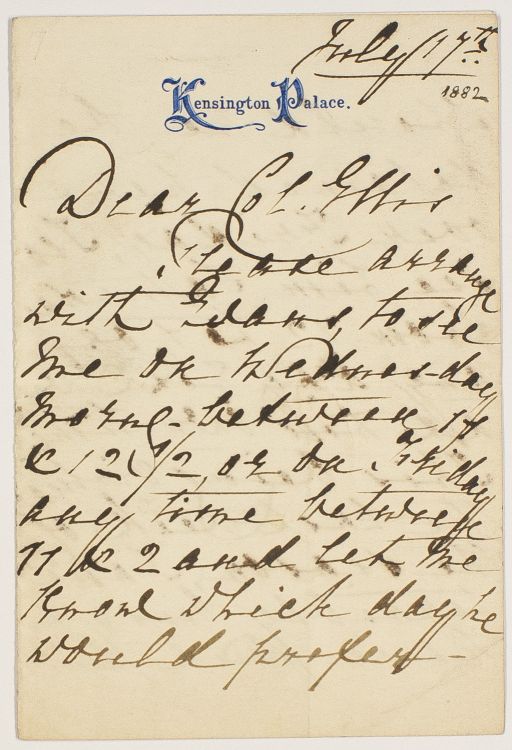 July 17th
1882
Kensington Palace.
Dear Col. Ellis
Please arrange
with Evans, to see
me on Wednesday
morng. between 11
& 12 1/2, or on Friday
any time between
11 & 2 and let me
know which day he
would prefer –